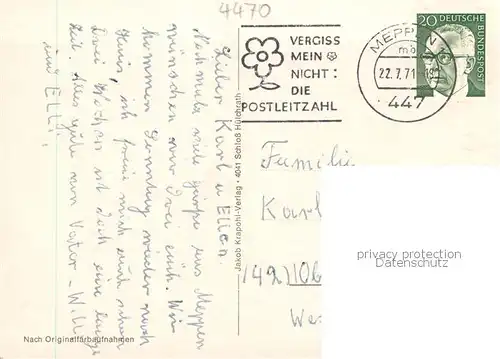 4470
VERGISS
MEIN
NICHT:
DIE
POSTLEITZAHL
MEPPEN
22.7.71
447
20 DEUTSCHE
BUNDESPOST
Lieber Karl u Ellen.
Nochmals viele Grüße aus Meppen
wünschen wir Drei euch. Wir
kommen Sonntag wieder nach
Haus, ich freu mich auch schon
Drei Wochen ist doch eine lange
Zeit. Alles gute von Vater - Willi
und Elli.
Jakob Krapohl-Verlag • 4041 Schloß Hülchrath
Nach Originalfarbaufnahmen
Familie
Karl
(42) Ob
We
privacy protection
Datenschutz